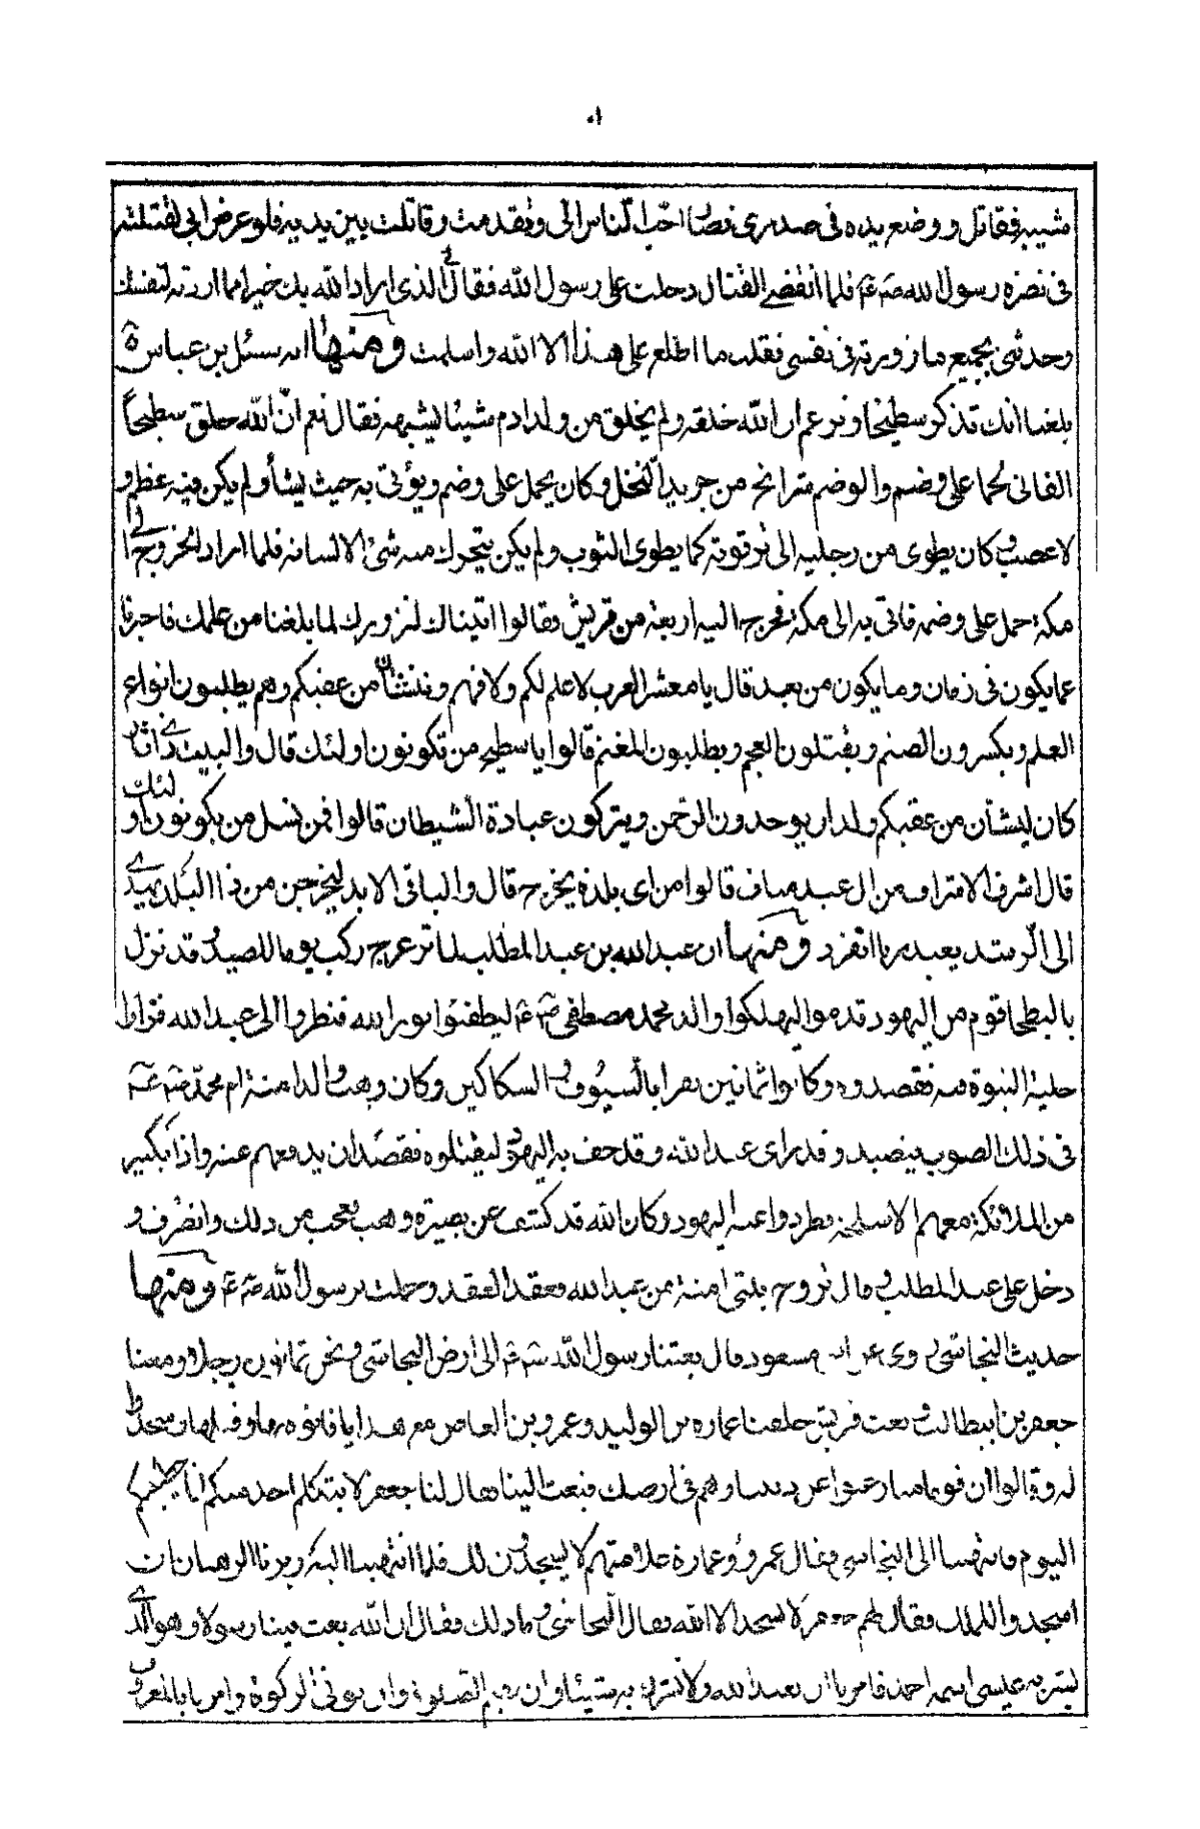 ٥١
شيبه فقاتل ووضع يده فى صدرى فصار احبّ الناس الىّ وتقدمت وقاتلت بين يديه فلو عرض ابى لقتلته
فى نصرة رسول الله صۤ عۤ فلما انقضى القتال دخلت على رسول الله فقال لى الذى اراد الله بك خير مما اردته لنفسك
وحدثنى بجميع ما زورته فى نفسى فقلت ما اطلع على هذا الا الله واسلمت ومنها انه سئل بن عباس
بلغنا انك تذكر سطيحا وتزعم ان الله خلقه ولم يخلق من ولد ادم شيئا يشبهه فقال نعم انّ الله خلق سطيحاً
الغانى لحما على وضم والوضم شرائح من جريد النخل وكان يحمل على وضم ويؤتى به حيث يشأ ولم يكن فيه عظم و
لا عصب وكان يطوى من رجليه الى ترقوته كما يطوى الثوب ولم يكن يتحرك منه شئ الا لسانه فلما اراد الخروج الى
مكة حمل على وضمه فاتى به الى مكة فخرج اليه اربعة من قريش وقالوا اتيناك لنزورك لما بلغنا من علمك فاخبرنا
عما يكون فى زمان وما يكون من بعد قال يا معشر العرب لا علم لكم ولا فهم وينشأن من عقبكم دهم يطلبون انواع
العلم ويكسرون الصنم ويقتلون العجم ويطلبون المغنم قالوا يا سطيح من تكونون اولئك قال والبيت ذى
كان لينشأن من عقبكم ولدان يوحدون الرحمن ويتركون عبادة الشيطان قالوا فمن نسل من يكونون اولئك
قال اشرف الاشراف من ال عبد مناف قالوا من اى بلدة يخرج قال والباقى الابد ليخرجن من ذا البلد يهدى
الى الرشد يعبد ربا انفرد ومنها ان عبد الله بن عبد المطلب لما ترعرع ركب يوما للصيد وقد نزل
بالبطحا قوم من اليهود قدموا ليهلكوا والد محمد مصطفى صۤ عۤ ليطفئوا نور الله فنظروا الى عبد الله فراوا
حلية النبوة فيه فقصدوه وكانوا ثمانين نفرا بالسيوف والسكاكين وكان وهب والد امنة ام محمد صۤ عۤ
فى ذلك الصوب يتصيد وقد راى عبد الله وقد حف به اليهود ليقتلوه فقصد ان يدفعهم عنه واذا بكثير
من الملائكة معهم الاسلحة طردوا عنه اليهود وكان الله قد كشف عن بصيرة وهب فتعجب من ذلك وانصرف و
دخل على عبد المطلب وقال تزوج بنتى امنة من عبد الله فعقد العقد وحملت برسول الله صۤ عۤ ومنها
حديث النجاشى روى عن ابن مسعود قال بعثنا رسول الله صۤ عۤ الى ارض النجاشى ونحن ثمانون رجلا ومعنا
جعفر بن ابيطالب وبعث قريش خلفنا عماره بن الوليد وعمرو بن العاص مع هدايا فاتوه بها وقبلها وسجدوا
له وقالوا ان قوما منا رغبوا عن ديننا وهم فى ارضك فبعث الينا فقال لنا جعفر لا يتكلم احد منكم انا خطيبكم
اليوم فانتهينا الى النجاشى فقال عمرو وعمارة لا يسجدون لك فلما انتهينا اليه زبرنا الرهبان ان
اسجدوا للملك فقال لهم جعفر لا نسجد الا لله فقال النجاشى وما ذلك فقال ان الله بعث فينا رسولا وهو الذى
بشر به عيسى اسمه احمد فامرنا ان نعبد الله ولا نشرك به شيئا وان نقيم الصلوة وان نوتى الزكوة وامرنا بالمعروف